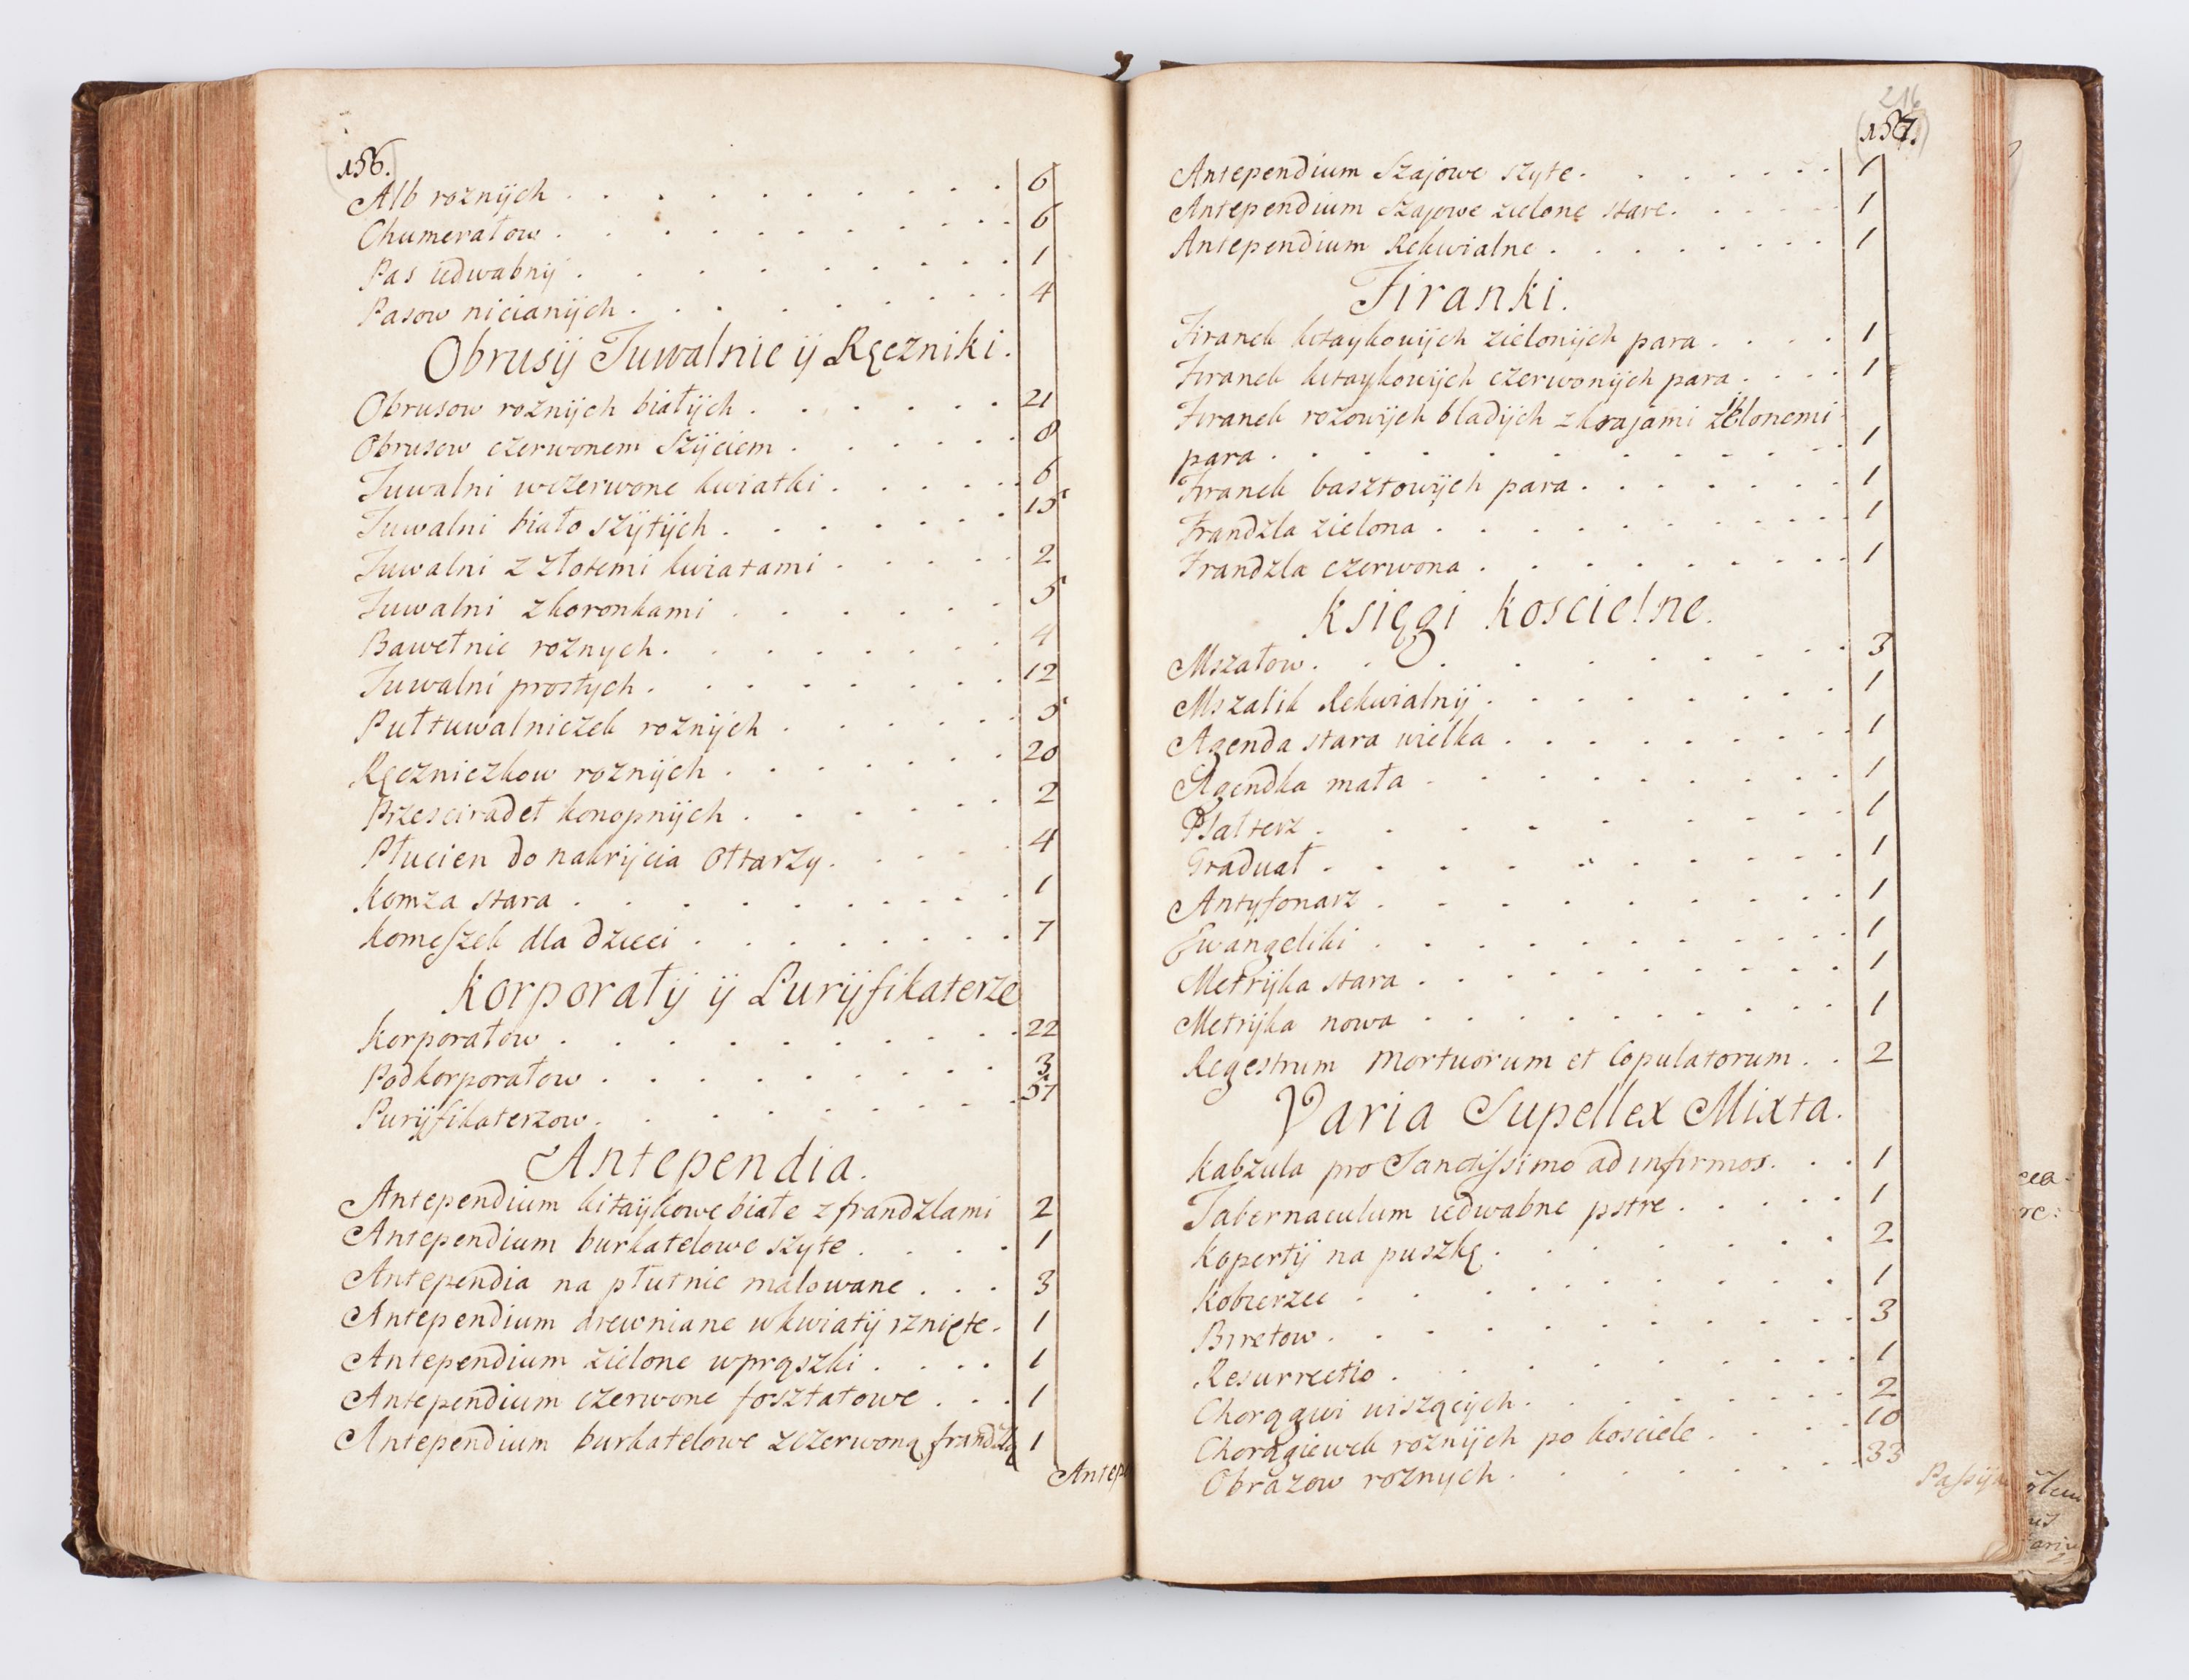 156.
Alb roznÿch . . . . . . . . . . 6
Chumerałow . . . . . . . . . . 6
Pas iedwabnÿ . . . . . . . . . 1
Pasow nicianÿch . . . . . . . . 4
Obrusÿ Tuwalnie ÿ Ręczniki.
Obrusow roznÿch białÿch . . . . . . 21
Obrusow czerwonem Szÿciem . . . . . . 8
Tuwalni wczerwone kwiatki . . . . . 6
Tuwalni biało szÿtÿch . . . . . . . 15
Tuwalni z złotemi kwiatami . . . . . 2
Tuwalni zkoronkami . . . . . . 5
Bawełnic roznych . . . . . . . . 4
Tuwalni prostych . . . . . . . . 12
Pułtuwalniczek roznÿch . . . . . . 5
Ręczniczkow roznÿch . . . . . . . 20
Przescieradeł konopnÿch . . . . . . 2
Płucien do nakrÿcia Ołtarzy . . . . . 4
Komza stara . . . . . . . . . 1
Komeszek dla dzieci . . . . . . . . 7
Korporałÿ ÿ Purÿfikaterze
Korporałow . . . . . . . . . . 22
Podkorporałow . . . . . . . . . 3
Purÿfikaterzow . . . . . . . . . 57
Antependia.
Antependium kitaÿkowe białe z frandzlami 2
Antependium burkatelowe szyte . . . . 1
Antependia na płutnie malowane . . . 3
Antependium drewniane wkwiatÿ rznięte . 1
Antependium zielone wprążki . . . . 1
Antependium czerwone fosztatowe . . . 1
Antependium burkatelowe zczerwoną frandzlą 1
Antep
216
157.
Antependium Szajowe szyte . . . . . . . 1
Antependium Szajowe zielone stare . . . . . 1
Antependium Rekwialne . . . . . . . . 1
Firanki.
Firanek kitaykowÿch zielonÿch para . . . . 1
Firanek kitaykowÿch czerwonÿch para . . . . 1
Firanek rozowÿch bladÿch zkrajami zielonemi
para . . . . . . . . . . . . 1
Firanek basztowÿch para . . . . . . . 1
Frandzla zielona . . . . . . . . . . 1
Frandzla czerwona . . . . . . . . . 1
Księgi Koscielne.
Mszałow . . . . . . . . . . 3
Mszalik Rekwialnÿ . . . . . . . . 1
Agenda stara wielka . . . . . . . . 1
Agendka mała . . . . . . . . . 1
Psałterz . . . . . . . . . . 1
Graduał . . . . . . . . . . . 1
Antyfonarz . . . . . . . . . . 1
Ewangeliki . . . . . . . . . . . 1
Metrÿka stara . . . . . . . . . . 1
Metrÿka nowa . . . . . . . . . . 1
Regestrum Mortuorum et Copulatorum . . 2
Varia Supellex Mixta.
Kabzula pro Sanctissimo ad infirmos . . . 1
Tabernaculum iedwabne pstre . . . . . 1
Kopertÿ na puszkę . . . . . . . . 2
Kobierzec . . . . . . . . . . 1
Biretow . . . . . . . . . . . 3
Resurrectio . . . . . . . . . . 1
Chorągwi wiszącÿch . . . . . . . . 2
Chorągiewek roznÿch po kosciele . . . . 10
Obrazow roznych . . . . . . . . 33